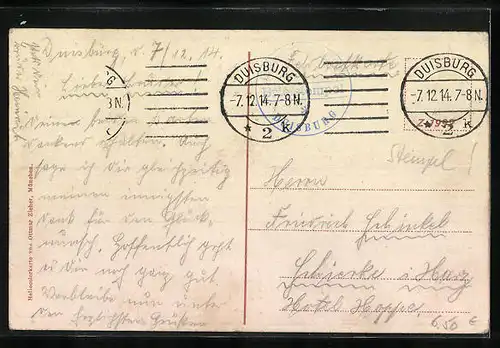 Duisburg, d. 7/12.14.
Lieber Bruder!
Deine beiden Karten
dankend erhalten. Auch
sage ich dir gleichzeitig
meinen innigsten
Dank für den Glück-
wunsch. Hoffentlich geht
es Dir noch ganz gut
Verbleibe nun unter
den herzlichsten Grüßen
DUISBURG
-7.12.14.7-8N.
* 2 K
DUISBURG
-7.12.14.7-8N.
* 2 K
8N.
Feldpostkarte
DUISBURG
Stempel!
Herrn
Friedrich Schinkel
Schierke i Harz
Hotel Hoppe
6,50 €
Heliocolorkarte von Ottmar Zieher, München.